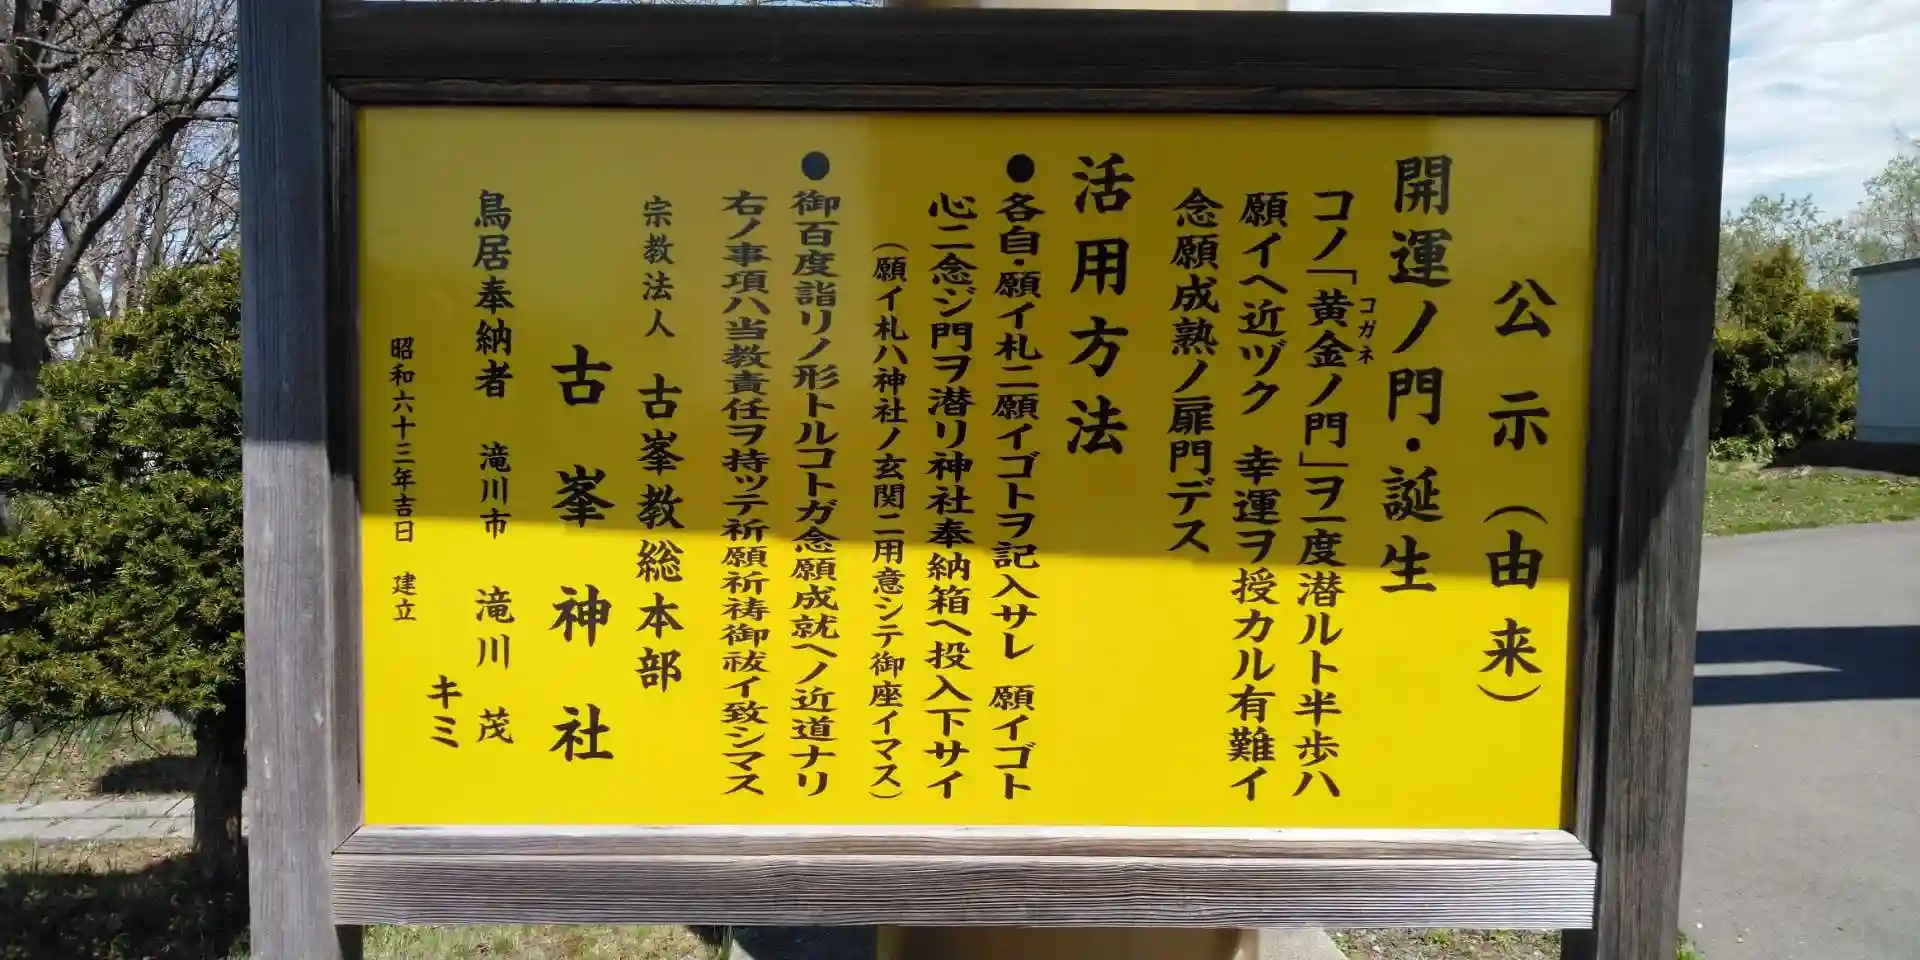 公示(由来)
開運ノ門・誕生
コノ「黄金ノ門」ヲ一度潜ルト半歩ハ
コガネ
願イヘ近ヅク 幸運ヲ授カル有難イ
念願成熟ノ扉門デス
活用方法
●各自・願イ札ニ願イゴトヲ記入サレ 願イゴト
心ニ念ジ門ヲ潜リ神社奉納箱ヘ投入下サイ
(願イ札ハ神社ノ玄関ニ用意シテ御座イマス)
●御百度詣リノ形トルコトガ念願成就ヘノ近道ナリ
右ノ事項ハ当教責任ヲ持ッテ祈願祈祷御祓イ致シマス
宗教法人 古峯教総本部
古峯神社
鳥居奉納者 滝川市 滝川 茂
キミ
昭和六十三年吉日 建立